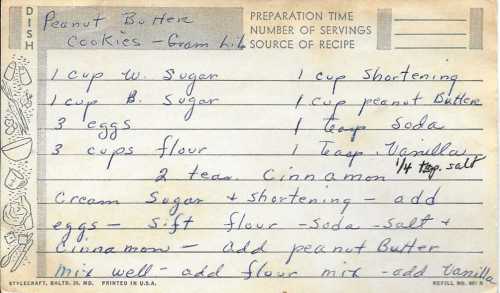 DISH
Peanut Butter
Cookies - Gram Lil
PREPARATION TIME
NUMBER OF SERVINGS
SOURCE OF RECIPE
1 cup W. Sugar 1 cup Shortening
1 cup B. Sugar 1 cup peanut Butter
3 eggs 1 teasp Soda
3 cups flour 1 Teasp. Vanilla
2 teas. Cinnamon 1/4 tsp. salt
Cream Sugar + shortening - add
eggs - Sift flour - soda - salt +
Cinnamon - add peanut Butter
mix well - add flour mix - add Vanilla
STYLECRAFT, BALTO. 30, MD. PRINTED IN U.S.A. REFILL NO.